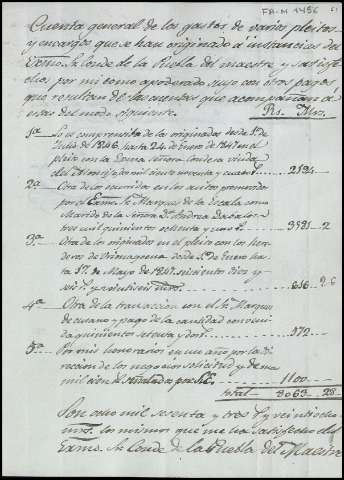 FA-M 1456
Cuenta general de los gastos de varios pleitos
y encargos que se han originado a instancias del
Exmo. Sr. Conde de la Puebla del maestre y satisfe-
chos por mi como apoderado suyo con otros pagos
que resultan de las cuentas que acompañan a
estas del modo siguiente.
Rs. Mrs.
1ª La comprensiva de la originados desde 1º de
Julio de 1846 hasta 24 de Enero de 1847 en el
pleito con la Exma Señora Condesa viuda
2ª Otra de los ocurridos en los autos promovidos
por el Exmo Sr. Marques de la Escala como
Marido de la Señora Dª Andrea
tres mil quinientos ochenta y un 3581 2
3ª Otra de los originados en el pleito con los here-
deros de desde 1º de Enero has-
ta 17 de Mayo de 1847 seiscientos diez y
seis y veintiseis mrs. 616 26
4ª Otra de la transaccion con el Sr. Marques
de y pago de la cantidad conveni-
da quinientos setenta y dos 572
5ª Por mis honorarios en un año por la Di-
reccion de los negocios solicitud y
señalados por S.E. 1100
total 8063 28
Son ocho mil sesenta y tres y veintiocho
mrs. los mismos que me ha satisfecho el
Exmo. Sr. Conde de la Puebla del Maestre